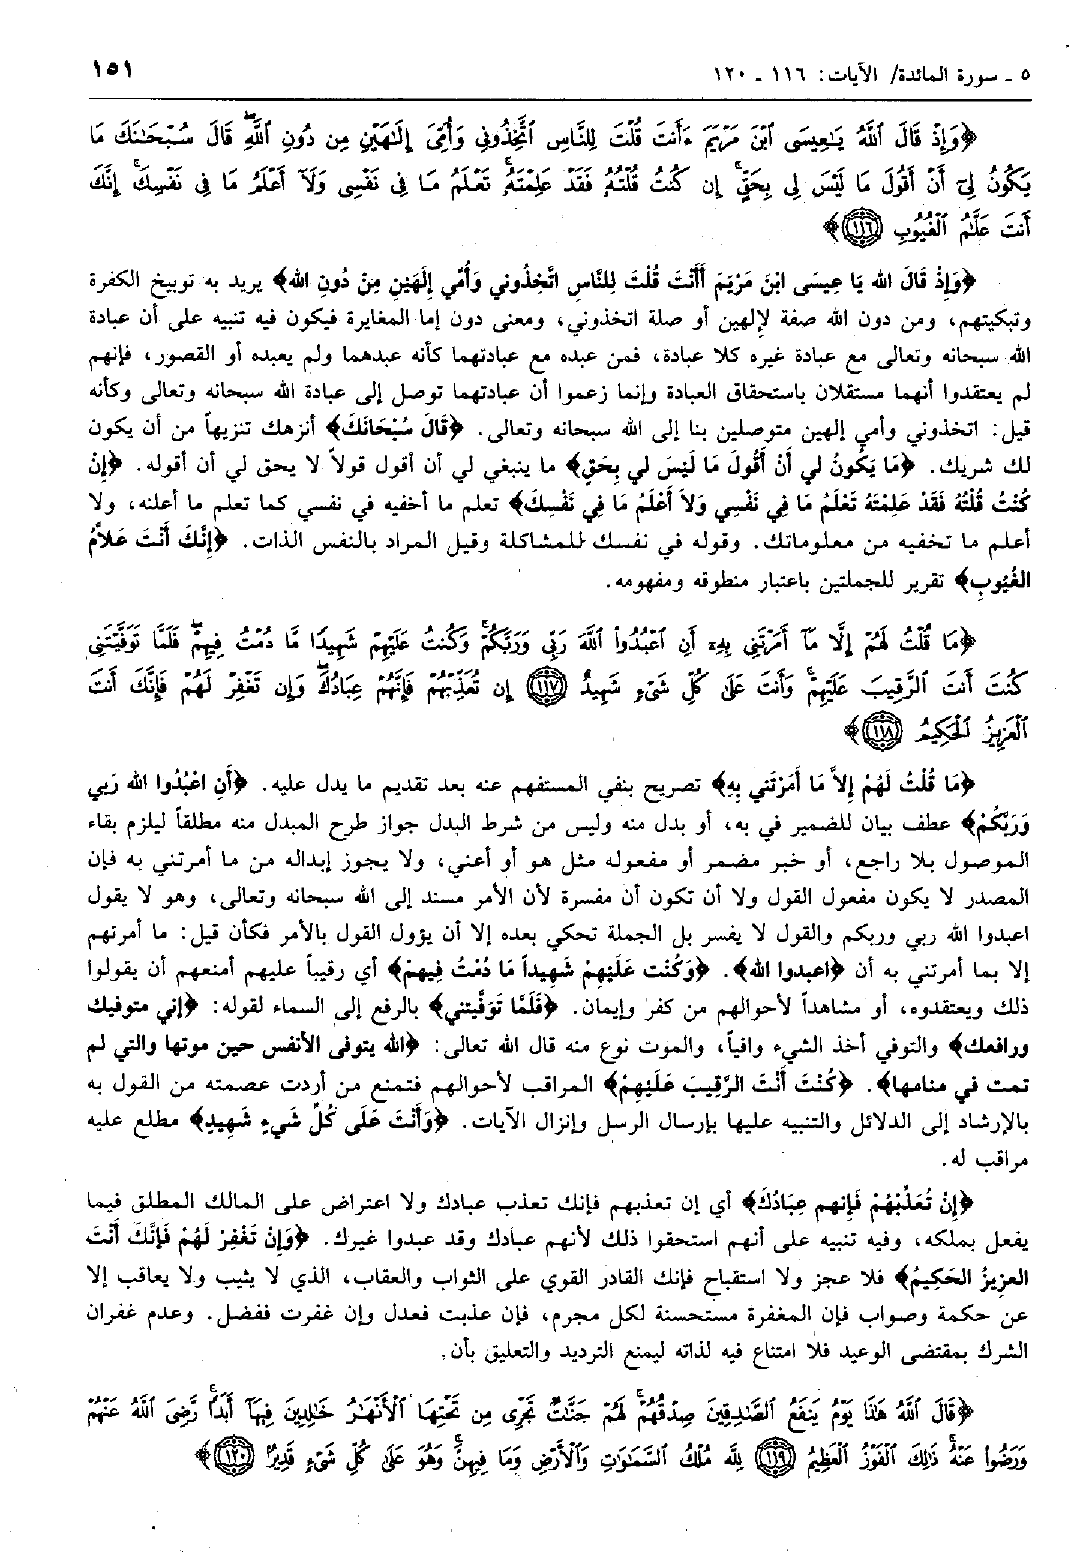 ٥ ـ سورة المائدة/ الآيات: ١١٦ ـ ١٢٠
١٥١
﴿وَإِذْ قَالَ ٱللَّهُ يَـٰعِيسَى ٱبْنَ مَرْيَمَ ءَأَنتَ قُلْتَ لِلنَّاسِ ٱتَّخِذُونِى وَأُمِّىَ إِلَـٰهَيْنِ مِن دُونِ ٱللَّهِۖ قَالَ سُبْحَـٰنَكَ مَا
يَكُونُ لِىٓ أَنْ أَقُولَ مَا لَيْسَ لِى بِحَقٍّۚ إِن كُنتُ قُلْتُهُۥ فَقَدْ عَلِمْتَهُۥۚ تَعْلَمُ مَا فِى نَفْسِى وَلَآ أَعْلَمُ مَا فِى نَفْسِكَۚ إِنَّكَ
أَنتَ عَلَّـٰمُ ٱلْغُيُوبِ ﴿١١٦﴾﴾
﴿وَإِذْ قَالَ الله يَا عِيسَى ابْنَ مَرْيَمَ أَأَنْتَ قُلْتَ لِلنَّاسِ اتَّخِذُوني وَأُمِّي إِلَهَيْنِ مِنْ دُونِ الله﴾ يريد به توبيخ الكفرة
وتبكيتهم، ومن دون الله صفة لإِلهين أو صلة اتخذوني، ومعنى دون إما المغايرة فيكون فيه تنبيه على أن عبادة
الله سبحانه وتعالى مع عبادة غيره كلا عبادة، فمن عبده مع عبادتهما كأنه عبدهما ولم يعبده أو القصور، فإنهم
لم يعتقدوا أنهما مستقلان باستحقاق العبادة وإنما زعموا أن عبادتهما توصل إلى عبادة الله سبحانه وتعالى وكأنه
قيل: اتخذوني وأمي إلهين متوصلين بنا إلى الله سبحانه وتعالى. ﴿قَالَ سُبْحَانَكَ﴾ أنزهك تنزيهاً من أن يكون
لك شريك. ﴿مَا يَكُونُ لي أَنْ أَقُولَ مَا لَيْسَ لي بِحَقٍ﴾ ما ينبغي لي أن أقول قولاً لا يحق لي أن أقوله. ﴿إِنْ
كُنْتُ قُلْتُهُ فَقَدْ عَلِمْتَهُ تَعْلَمُ مَا في نَفْسِي وَلاَ أَعْلَمُ مَا فِي نَفْسِكَ﴾ تعلم ما أخفيه في نفسي كما تعلم ما أعلنه، ولا
أعلم ما تخفيه من معلوماتك. وقوله في نفسك للمشاكلة وقيل المراد بالنفس الذات. ﴿إِنَّكَ أَنْتَ عَلاَّمُ
الغُيُوبِ﴾ تقرير للجملتين باعتبار منطوقه ومفهومه.
﴿مَا قُلْتُ لَهُمْ إِلَّا مَآ أَمَرْتَنِى بِهِۦٓ أَنِ ٱعْبُدُوا۟ ٱللَّهَ رَبِّى وَرَبَّكُمْۚ وَكُنتُ عَلَيْهِمْ شَهِيدًا مَّا دُمْتُ فِيهِمْۖ فَلَمَّا تَوَفَّيْتَنِى
كُنتَ أَنتَ ٱلرَّقِيبَ عَلَيْهِمْۚ وَأَنتَ عَلَىٰ كُلِّ شَىْءٍ شَهِيدٌ ﴿١١٧﴾ إِن تُعَذِّبْهُمْ فَإِنَّهُمْ عِبَادُكَۖ وَإِن تَغْفِرْ لَهُمْ فَإِنَّكَ أَنتَ
ٱلْعَزِيزُ ٱلْحَكِيمُ ﴿١١٨﴾﴾
﴿مَا قُلْتُ لَهُمْ إِلاَّ مَا أَمَرْتَني بِهِ﴾ تصريح بنفي المستفهم عنه بعد تقديم ما يدل عليه. ﴿أَنِ اعْبُدُوا الله رَبي
وَرَبَّكُمْ﴾ عطف بيان للضمير في به، أو بدل منه وليس من شرط البدل جواز طرح المبدل منه مطلقاً ليلزم بقاء
الموصول بلا راجع، أو خبر مضمر أو مفعوله مثل هو أو أعني، ولا يجوز إبداله من ما أمرتني به فإن
المصدر لا يكون مفعول القول ولا أن تكون أن مفسرة لأن الأمر مسند إلى الله سبحانه وتعالى، وهو لا يقول
اعبدوا الله ربي وربكم والقول لا يفسر بل الجملة تحكي بعده إلا أن يؤول القول بالأمر فكأن قيل: ما أمرتهم
إلا بما أمرتني به أن ﴿اعبدوا الله﴾. ﴿وَكُنْت عَلَيْهِمْ شَهِيداً مَا دُمْتُ فِيهِمْ﴾ أي رقيباً عليهم أمنعهم أن يقولوا
ذلك ويعتقدوه، أو مشاهداً لأحوالهم من كفر وإيمان. ﴿فَلَمَّا تَوَفَّيْتَني﴾ بالرفع إلى السماء لقوله: ﴿إني متوفيك
ورافعك﴾ والتوفي أخذ الشيء وافياً، والموت نوع منه قال الله تعالى: ﴿الله يتوفى الأنفس حين موتها والتي لم
تمت في منامها﴾. ﴿كُنْتَ أَنْتَ الرَّقِيبَ عَلَيْهِمْ﴾ المراقب لأحوالهم فتمنع من أردت عصمته من القول به
بالإرشاد إلى الدلائل والتنبيه عليها بإرسال الرسل وإنزال الآيات. ﴿وَأَنْتَ عَلَى كُلِّ شَيءٍ شَهِيدٍ﴾ مطلع عليه
مراقب له.
﴿إِنْ تُعَذِّبْهُمْ فَإِنهم عِبَادُكَ﴾ أي إن تعذبهم فإنك تعذب عبادك ولا اعتراض على المالك المطلق فيما
يفعل بملكه، وفيه تنبيه على أنهم استحقوا ذلك لأنهم عبادك وقد عبدوا غيرك. ﴿وَإِنْ تَغْفِرْ لَهُمْ فَإِنَّكَ أَنْتَ
العزيزُ الحَكِيمُ﴾ فلا عجز ولا استقباح فإنك القادر القوي على الثواب والعقاب، الذي لا يثيب ولا يعاقب إلا
عن حكمة وصواب فإن المغفرة مستحسنة لكل مجرم، فإن عذبت فعدل وإن غفرت ففضل. وعدم غفران
الشرك بمقتضى الوعيد فلا امتناع فيه لذاته ليمنع الترديد والتعليق بأن.
﴿قَالَ ٱللَّهُ هَـٰذَا يَوْمُ يَنفَعُ ٱلصَّـٰدِقِينَ صِدْقُهُمْۚ لَهُمْ جَنَّـٰتٌ تَجْرِى مِن تَحْتِهَا ٱلْأَنْهَـٰرُ خَـٰلِدِينَ فِيهَآ أَبَدًاۚ رَّضِىَ ٱللَّهُ عَنْهُمْ
وَرَضُوا۟ عَنْهُۚ ذَٰلِكَ ٱلْفَوْزُ ٱلْعَظِيمُ ﴿١١٩﴾ لِلَّهِ مُلْكُ ٱلسَّمَـٰوَٰتِ وَٱلْأَرْضِ وَمَا فِيهِنَّۚ وَهُوَ عَلَىٰ كُلِّ شَىْءٍ قَدِيرٌۢ ﴿١٢٠﴾﴾